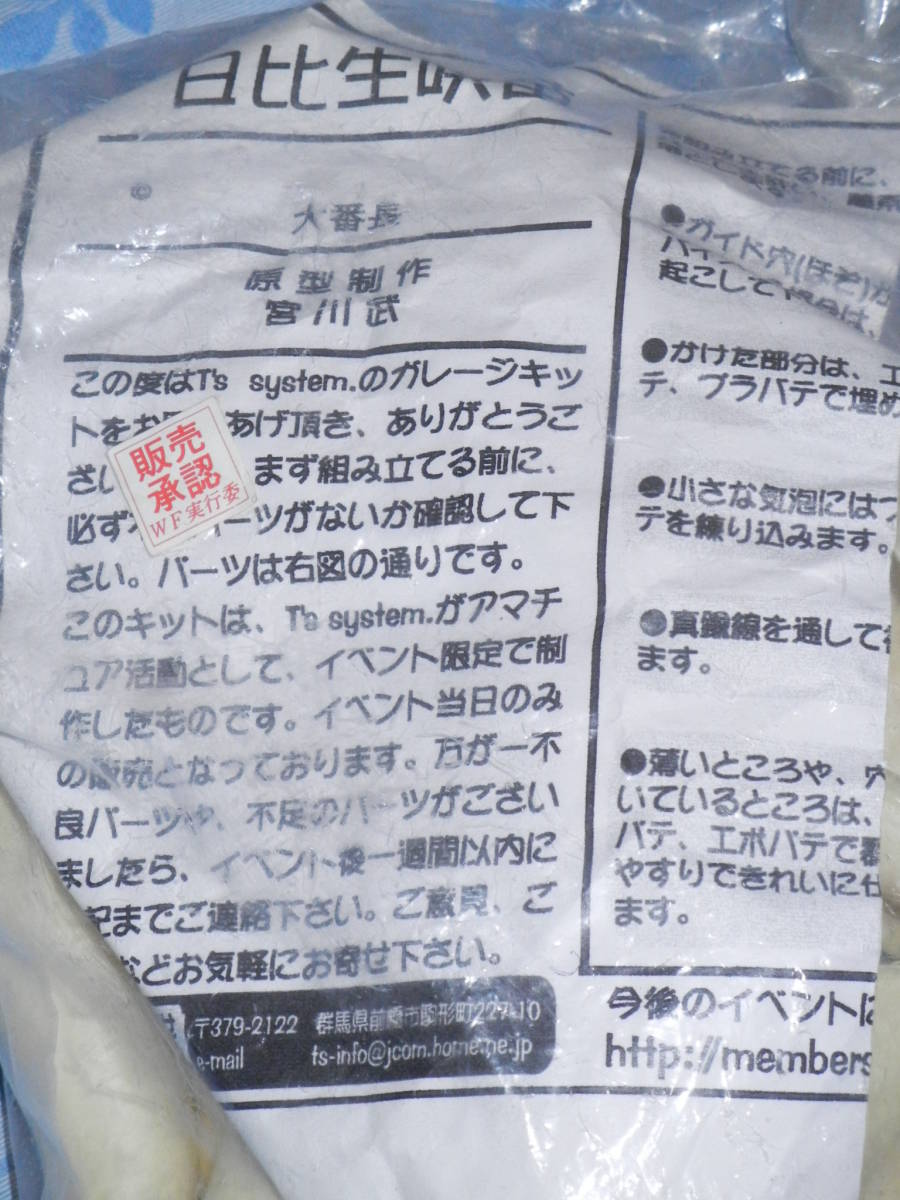 日比生吹雪
©
大番長
原型制作
宮川武
この度はT's system.のガレージキッ
トをお あげ頂き、ありがとうご
ざい まず組み立てる前に、
必ず ーツがないか確認して下
さい。パーツは右図の通りです。
このキットは、T's system.がアマチ
ュア活動として、イベント限定で制
作したものです。イベント当日のみ
の販売となっております。万が一不
良パーツや、不足のパーツがござい
ましたら、イベント後一週間以内に
記までご連絡下さい。ご意見、ご
などお気軽にお寄せ下さい。
販売
承認
WF実行委
〒379-2122 群馬県前橋市駒形町227-10
e-mail ts-info@jcom.home.ne.jp
組み立てる前に、
●ガイド穴(ほぞ)が
起こして
●かけた部分は、エ
テ、プラパテで埋め
●小さな気泡には
テを練り込みます。
●真鍮線を通して
ます。
●薄いところや、穴
いているところは、
パテ、エポパテで
やすりできれいに仕
ます。
今後のイベントに
http://members